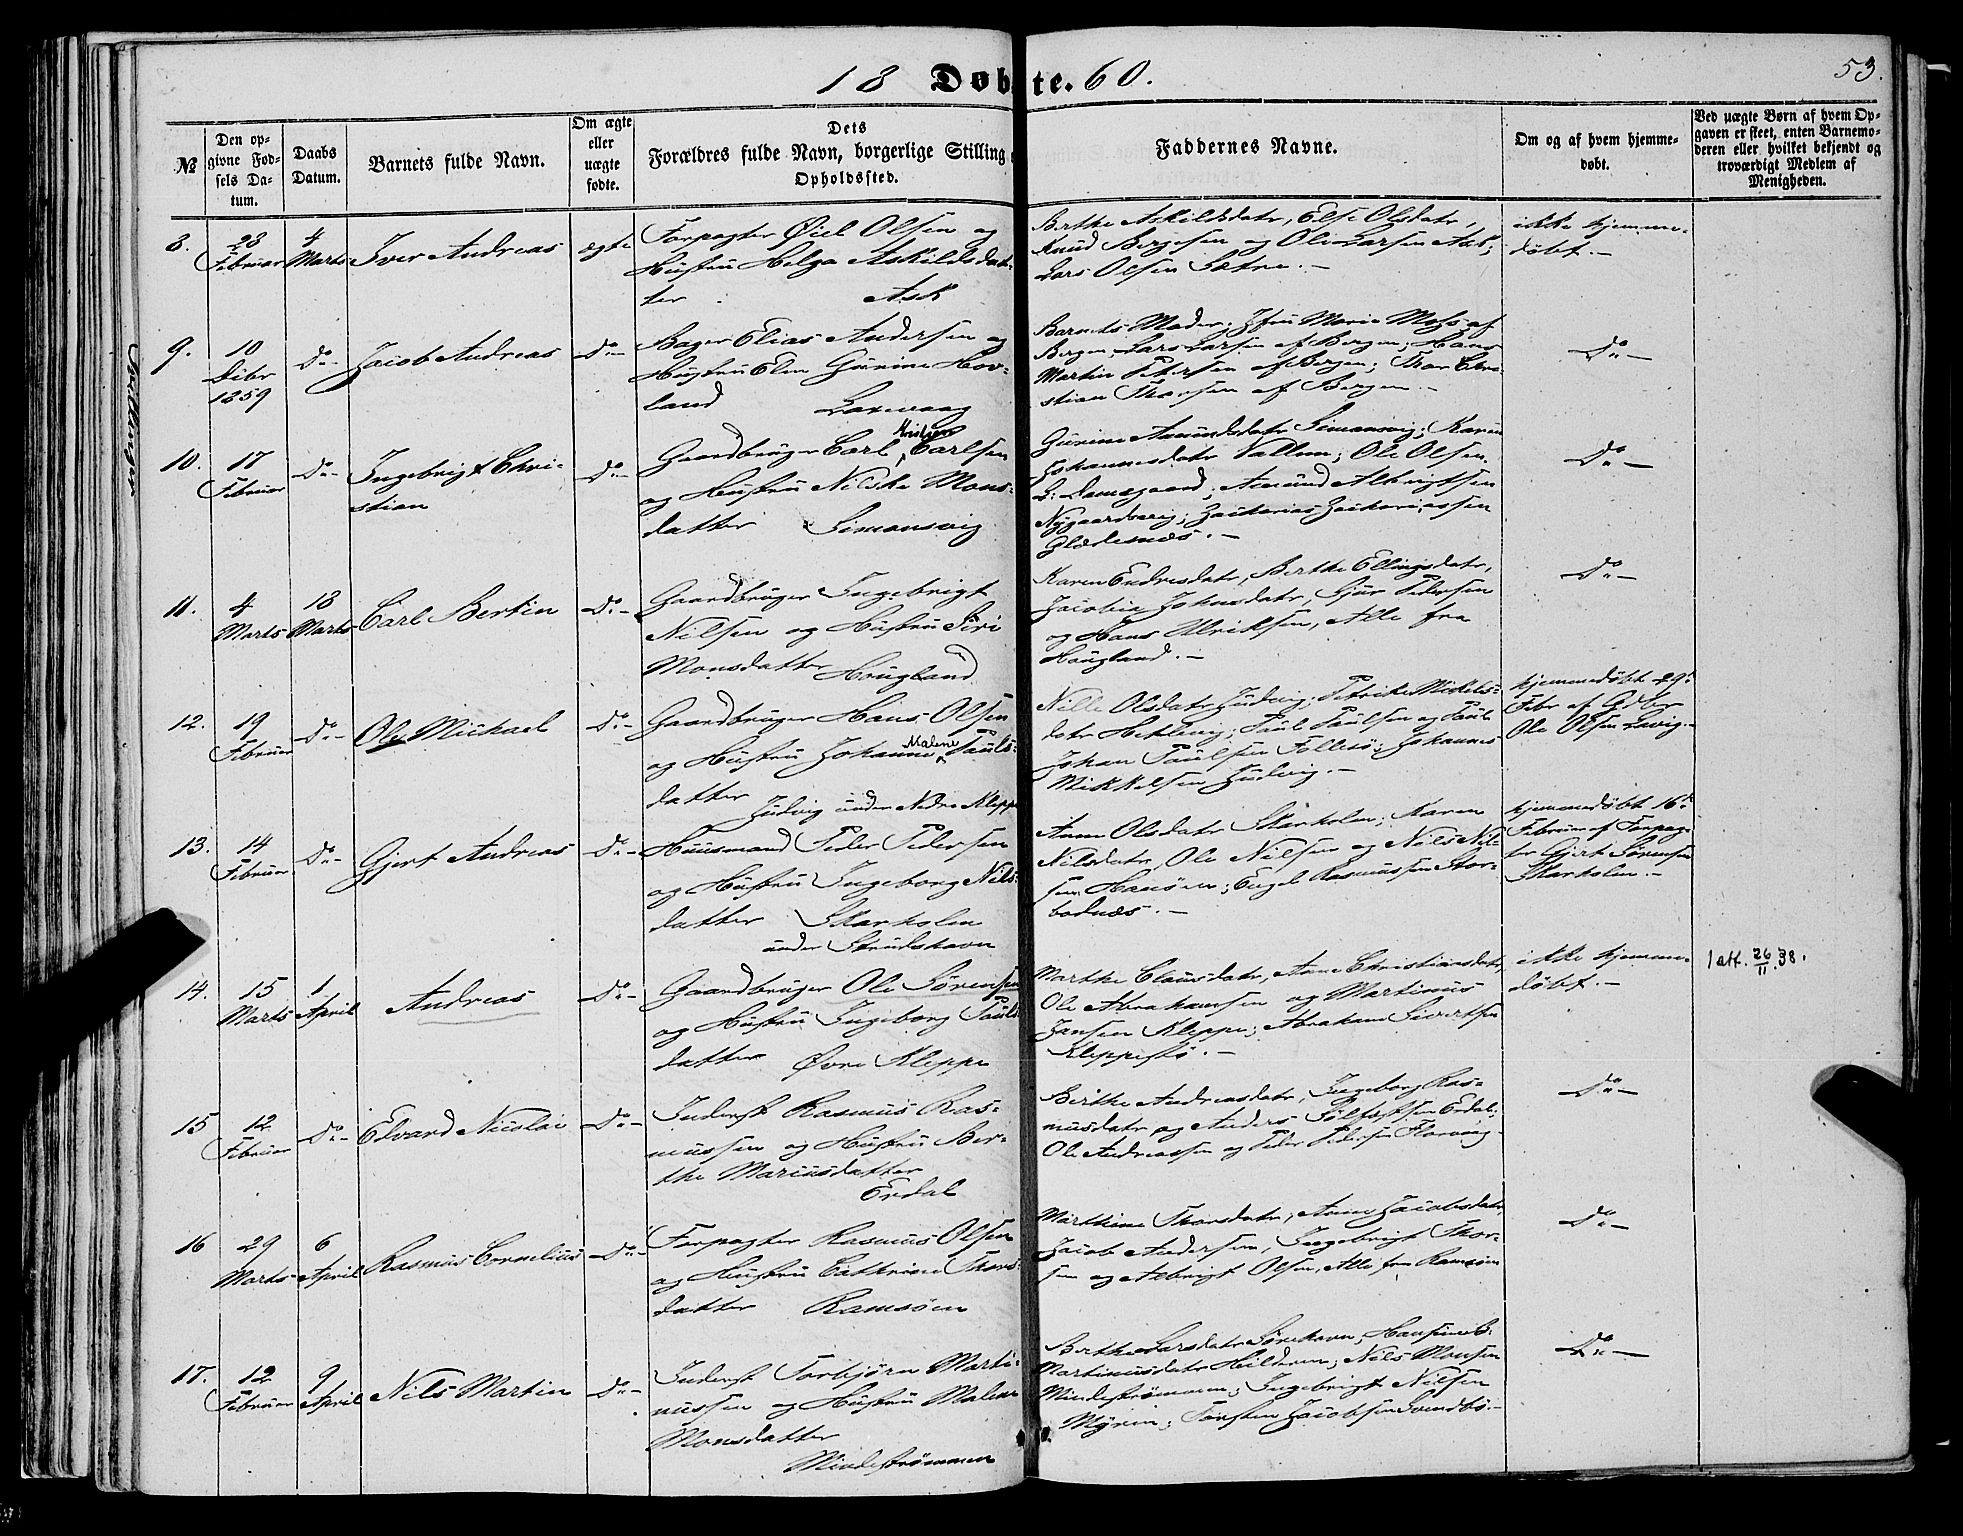 18 Døbte. 60.
53.
No
Den opgivne Fødsels Datum.
Daabs Datum.
Barnets fulde Navn.
Om ægte eller uægte fødte.
Dets
Forældres fulde Navn, borgerlige Stilling
Opholdssted.
Faddernes Navne.
Om og af hvem hjemmedøbt.
Ved uægte Børn af hvem Opgaven er skeet, enten Barnemoderen eller hvilket bekjendt og troværdigt Medlem af Menigheden.
8.
28 Februar
4 Marts
Iver Andreas
ægte
Forpagter Øiel Olsen og
Hustru Helga Askildsdat-
ter Ask
Berthe Askildsdatr, Else Olsdatr,
Knud Bergesen og Ole Larsen Ask;
Lars Olsen Sætre.-
ikke hjemme-
døbt.-
9.
10 Debr 1859
Do-
Jacob Andreas
Do-
Bager Elias Andersen og
Hustru Elen Gurine Hov-
land
Barnets Moder; Jfru Marie Mohs af
Bergen; Lars Larsen af Bergen; Hans
Martin Petersen af Bergen; Thor Chri-
stian Thorsen af Bergen.-
Do-
10.
17 Februar
Do-
Ingebrigt Chri-
stian
Do-
Gaardbruger Carl Carlsen
og Hustru Nilske Mons-
datter Simonsvig
Gurine Amundsdatr Simonsvig; Karen
Johannesdatr Vallem; Ole Olsen
L: Damsgaard; Amund Albrigtsen
Nygaardsvig; Zacharias Zachariassen
Glædesnæs.-
Do-
11.
4 Marts
18 Marts
Carl Bertin
Do-
Gaardbruger Ingebrigt
Nilsen og Hustru Siri
Monsdatter Hougland
Karen Endresdatr, Berthe Ellingsdatr,
Jacobia Johnsdatr, Sjur Pedersen
og Hans Ulriksen, Alle fra
Hougland.-
Do-
12.
19 Februar
Do-
Ole Michael
Do-
Gaardbruger Hans Olsen
og Hustru Johanne Malene Pauls-
datter Judvig under Nedre Kleppe
Nille Olsdatr Judvig; Petrike Mickels-
datr Hetlevig; Paul Paulsen og Paul
Johan Paulsen Follesø; Johannes
Mikkelsen Judvig.-
hjemmedøbt 29d
Febr af Gdbr
Ole Olsen
13.
14 Februar
Do-
Gjert Andreas
Do-
Huusmand Peder Pedersen
og Hustru Ingeborg Nils-
datter Skarholm
under Strudshavn
Anne Olsdatr Skarholm; Karen
Nilsdatr, Ole Nilsen og Nils Nil-
sen Hanøen; Engel Rasmussen Stor-
bodnæs.-
hjemmedøbt 16d
Februar af Forpag-
ter Gjert Sørensen
Skarholm.-
14.
15 Marts
1 April
Andreas
Do-
Gaardbruger Ole Sørensen
og Hustru Ingeborg Pauls-
datter Øvre Kleppe
Marthe Clausdatr, Anne Christiansdatr,
Ole Abrahamsen og Martinus
Jansen Kleppe; Abraham Sivertsen
Kleppestø.-
ikke hjemme-
døbt.-
1 att. 26/11.38.
15
12 Februar
Do-
Edvard Nicolai
Do-
Inderst Rasmus Ras-
mussen og Hustru Ber-
the Mariusdatter
Erdal
Berthe Andreasdatr, Ingeborg Ras-
musdatr og Anders Erdal;
Ole Andreassen og Peder Pedersen Florvaag-
Do-
16
29 Marts
6 April
Rasmus Cornelius
Do-
Forpagter Rasmus Olsen
og Hustru Cathrine Thors-
datter Ramsøen
Marthine Thorsdatr, Anne Jacobsdatr,
Jacob Andersen, Ingebrigt Thor-
sen og Albrigt Olsen, Alle fra Ramsøen
Do-
17.
12 Februar
9 April
Nils Martin
Do-
Inderst Torbjørn Marti-
nussen og Hustru Malene
Monsdatter
Mindestrømmen
Berthe Larsdatr
Martinusdatr Hilderen; Nils Monsen
Mindestrømmen; Ingebrigt Nilsen
Myren; Torsten Jacobsen Svendbø.-
Do-